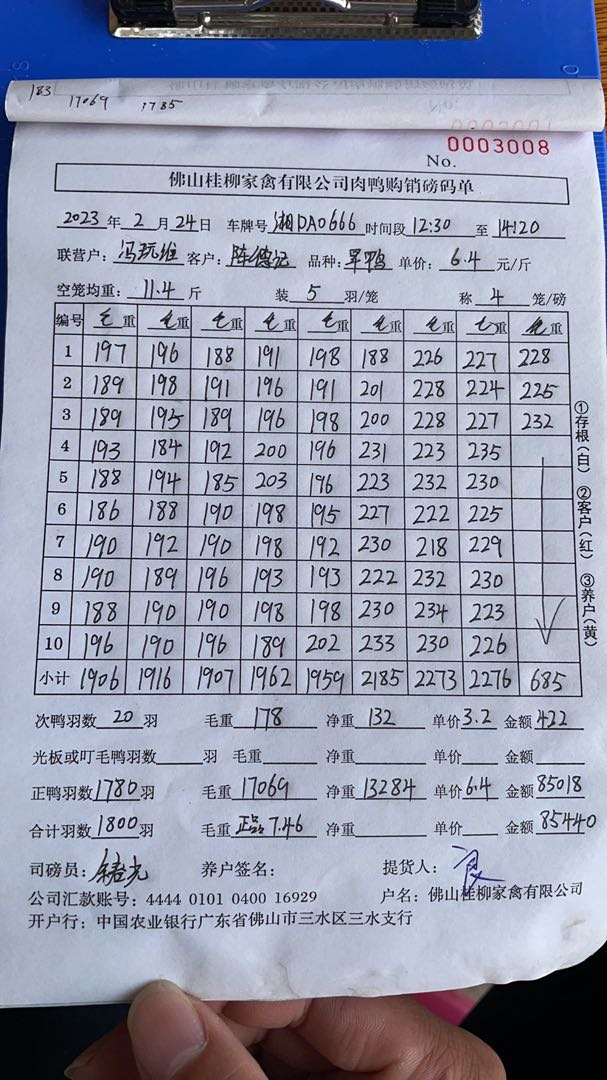 183
17069 3785
No. 0003008
佛山桂柳家禽有限公司肉鸭购销磅码单
2023年2月24日 车牌号湘DA0666 时间段12:30至14:20
联营户: 冯玩维 客户: 陈德记 品种: 单价: 6.4元/斤
空笼均重: 11.4斤 装5羽/笼 称4笼/磅
编号 毛重 毛重 毛重 毛重 毛重 毛重 毛重 毛重 毛重
1 197 196 188 191 198 188 226 227 228
2 189 198 191 196 191 201 228 224 225
3 189 195 189 196 198 200 228 227 232
4 193 184 192 200 196 231 223 235
5 188 194 185 203 196 223 232 230
6 186 188 190 198 195 227 222 225
7 190 192 190 198 192 230 218 229
8 190 189 196 193 193 222 232 230
9 188 190 190 198 198 230 234 223
10 196 190 196 189 202 233 230 226
小计 1906 1916 1907 1962 1959 2185 2273 2276 685
①存根(白) ②客户(红) ③养户(黄)
次鸭羽数20羽 毛重178 净重132 单价3.2 金额422
光板或叮毛鸭羽数 羽 毛重 净重 单价 金额
正鸭羽数1780羽 毛重17069 净重13284 单价6.4 金额85018
合计羽数1800羽 毛重正品7.46 净重 单价 金额85440
司磅员: 养户签名: 提货人:
公司汇款账号: 4444 0101 0400 16929 户名: 佛山桂柳家禽有限公司
开户行: 中国农业银行广东省佛山市三水区三水支行